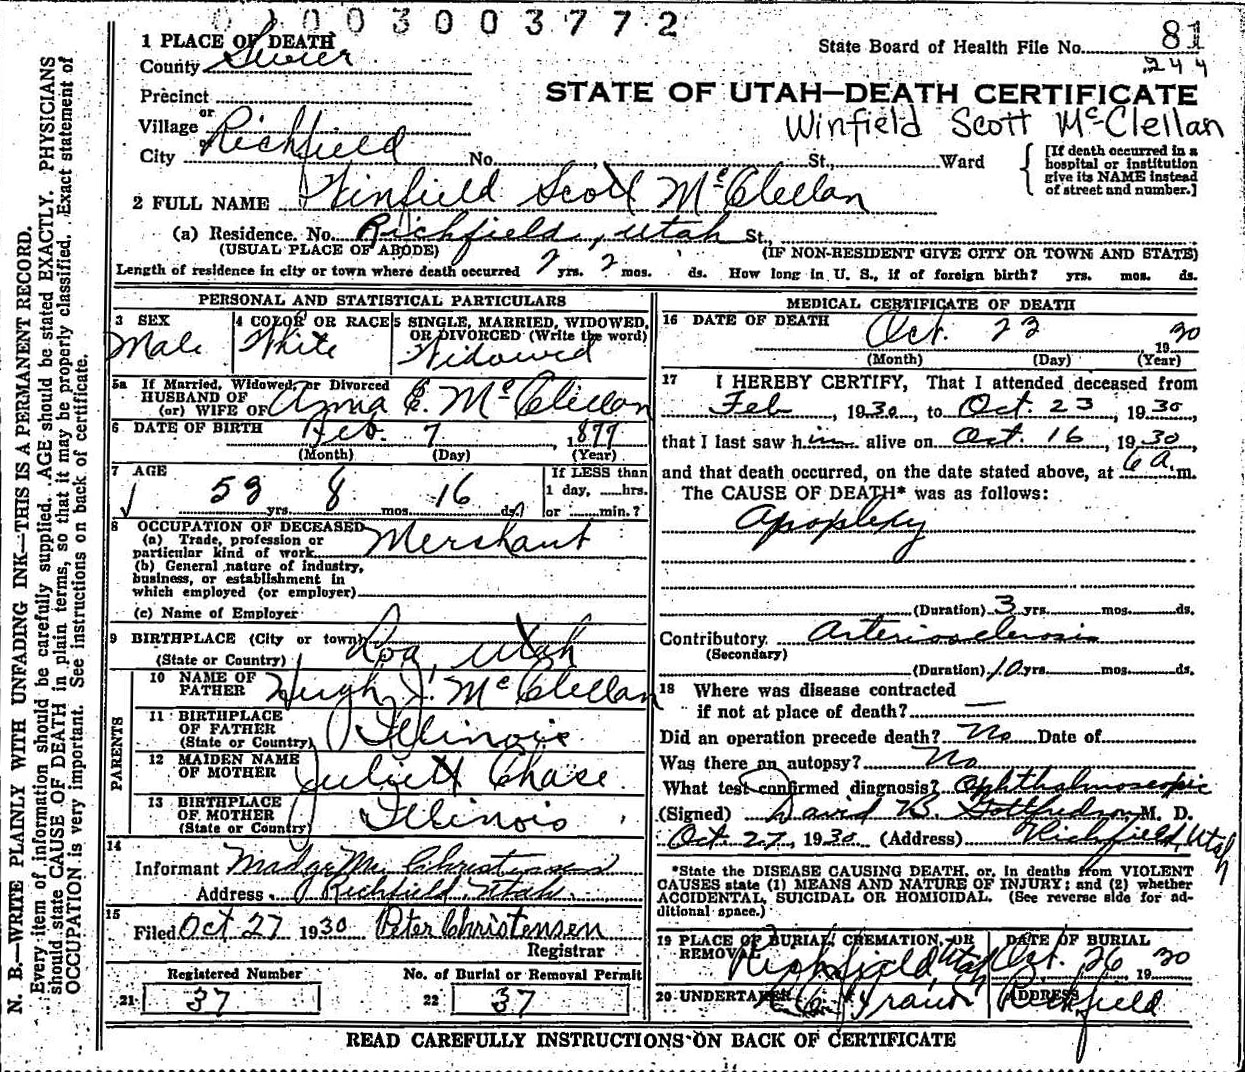 003003772
1 PLACE OF DEATH
State Board of Health File No. 81
244
County Sevier
Precinct
STATE OF UTAH—DEATH CERTIFICATE
or
Village
Winfield Scott McClellan
City Richfield No. St., Ward
[If death occurred in a hospital or institution give its NAME instead of street and number.]
2 FULL NAME Winfield Scott McClellan
(a) Residence. No. Richfield, Utah St.,
(USUAL PLACE OF ABODE) (IF NON-RESIDENT GIVE CITY OR TOWN AND STATE)
Length of residence in city or town where death occurred yrs. 2 mos. ds. How long in U. S., if of foreign birth? yrs. mos. ds.
PERSONAL AND STATISTICAL PARTICULARS
3 SEX Male
4 COLOR OR RACE White
5 SINGLE, MARRIED, WIDOWED, OR DIVORCED (Write the word) Widowed
5a If Married, Widowed, or Divorced
HUSBAND OF
(or) WIFE OF Anna E. McClellan
6 DATE OF BIRTH Feb. 7, 1877
(Month) (Day) (Year)
7 AGE 53 yrs. 8 mos. 16 ds.
If LESS than
1 day, hrs.
or min.?
8 OCCUPATION OF DECEASED
(a) Trade, profession or
particular kind of work Merchant
(b) General nature of industry,
business, or establishment in
which employed (or employer)
(c) Name of Employer
9 BIRTHPLACE (City or town) Loa, Utah
(State or Country)
PARENTS
10 NAME OF
FATHER Hugh J. McClellan
11 BIRTHPLACE
OF FATHER
(State or Country) Illinois
12 MAIDEN NAME
OF MOTHER Juliett Chase
13 BIRTHPLACE
OF MOTHER
(State or Country) Illinois
14
Informant Madge M. Christensen
Address Richfield Utah
15
Filed Oct 27 1930 Peter Christensen
Registrar
Registered Number No. of Burial or Removal Permit
21 37 22 37
MEDICAL CERTIFICATE OF DEATH
16 DATE OF DEATH Oct. 23 1930
(Month) (Day) (Year)
17 I HEREBY CERTIFY, That I attended deceased from
Feb, 1930, to Oct. 23, 1930,
that I last saw him alive on Oct. 16, 1930,
and that death occurred, on the date stated above, at 6 a.m.
The CAUSE OF DEATH* was as follows:
Apoplexy
(Duration) 3 yrs. mos. ds.
Contributory Arteriosclerosis
(Secondary)
(Duration) 10 yrs. mos. ds.
18 Where was disease contracted
if not at place of death? —
Did an operation precede death? No Date of
Was there an autopsy? No
What test confirmed diagnosis? Ophthalmoscopic
(Signed) David B. Gottfredson M. D.
Oct 27, 1930 (Address) Richfield, Utah
*State the DISEASE CAUSING DEATH, or, in deaths from VIOLENT
CAUSES state (1) MEANS AND NATURE OF INJURY; and (2) whether
ACCIDENTAL, SUICIDAL OR HOMICIDAL. (See reverse side for ad-
ditional space.)
19 PLACE OF BURIAL, CREMATION, OR
REMOVAL Richfield, Utah
DATE OF BURIAL
Oct. 26 1930
20 UNDERTAKER
ADDRESS Richfield
READ CAREFULLY INSTRUCTIONS ON BACK OF CERTIFICATE
N. B.—WRITE PLAINLY WITH UNFADING INK—THIS IS A PERMANENT RECORD.
Every item of information should be carefully supplied. AGE should be stated EXACTLY. PHYSICIANS
should state CAUSE OF DEATH in plain terms, so that it may be properly classified. Exact statement of
OCCUPATION is very important. See instructions on back of certificate.